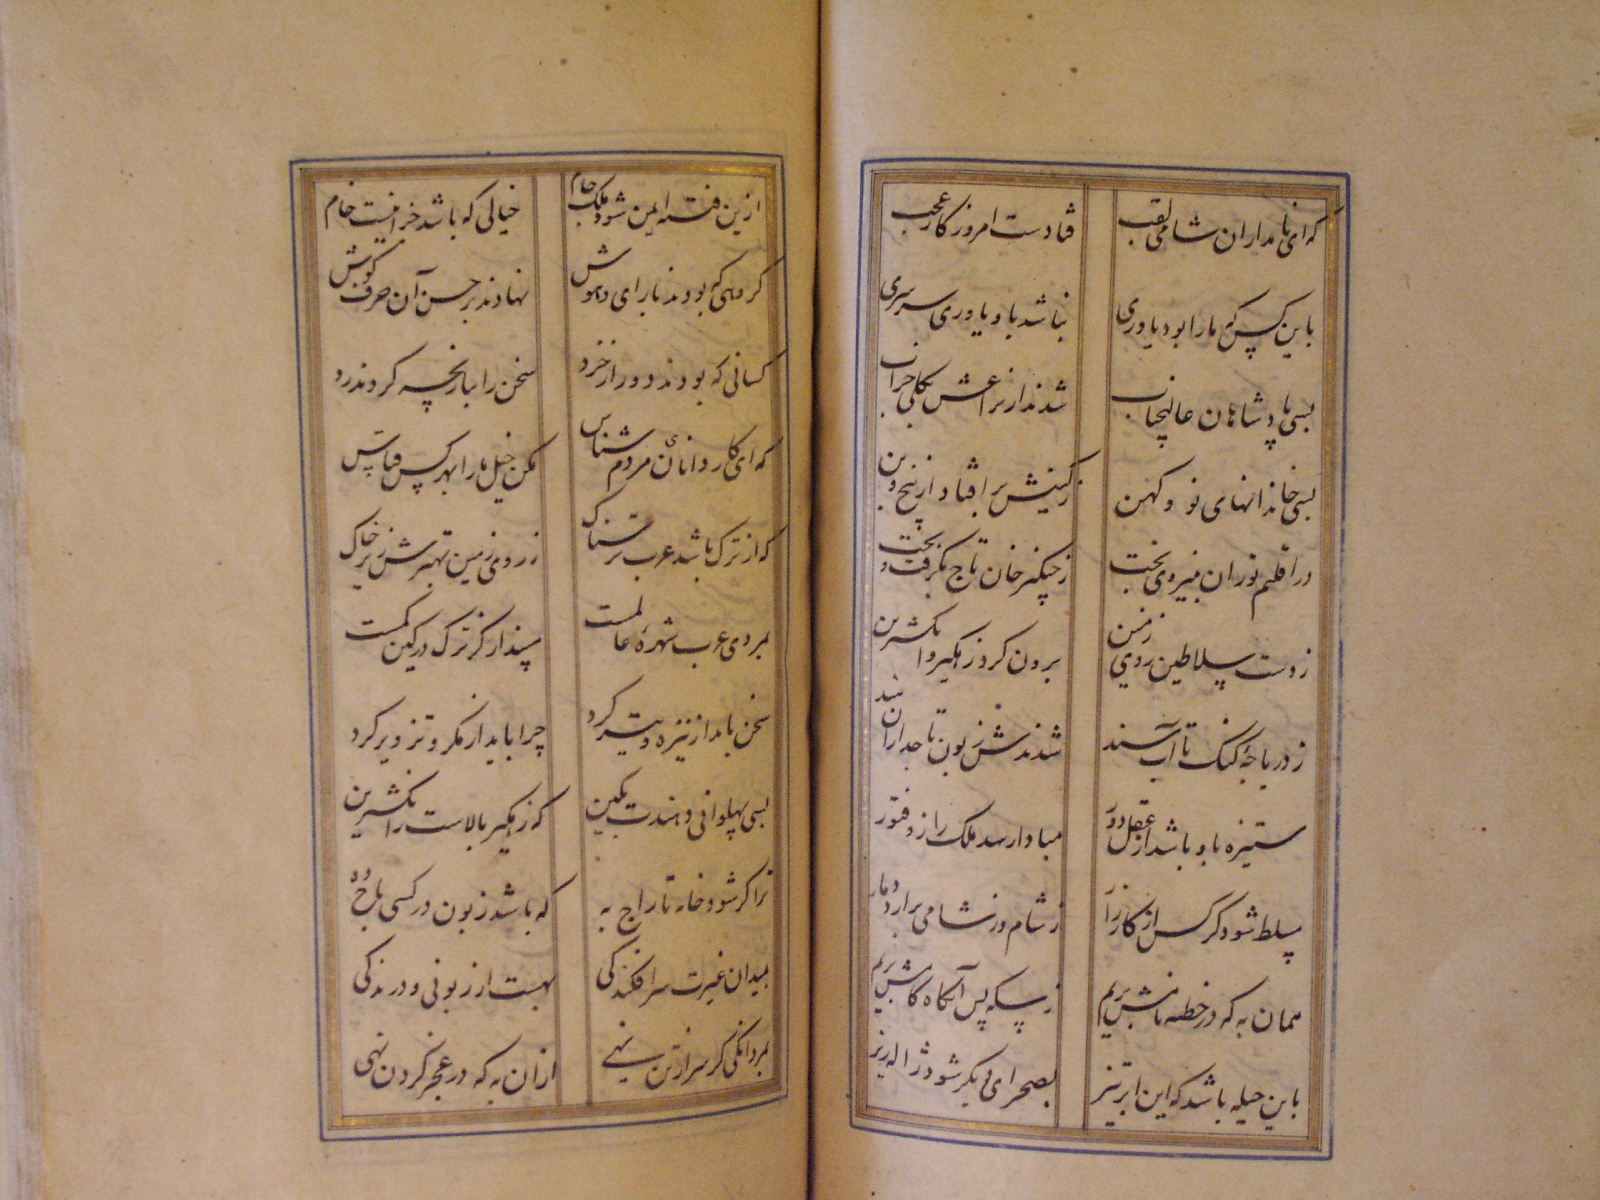 که ای نامداران شامی لقب فتادست امروز کار عجب
باین کس که ما را بود یاوری نباشد باو یاوری سرسری
بسی پادشاهان عالیجناب شدند از نزاعش بکلی خراب
بسی خاندانهای نو و کهن ز کینش برافتاد از بیخ و بن
در اقلیم توران بنیروی بخت ز چنگیز خان تاج بگرفت و تخت
ز دست سلاطین روی زمین برون کرد زهگیر و انگشترین
ز دریاچه گنگ تا آب سند شدندش زبون تاجداران هند
ستیزه باو باشد از عقل دور مبادا رسد ملک را زو فتور
مسلط شود گر کس از کارزار ز شام و ز شامی برارد دمار
همان به که در خطبه نامش بریم ز سکه پس آنگاه کامش بریم
باین حیله باشد که این ابر تیز بصحرای دیگر شود ژاله ریز
ازین فتنه ایمن شود ملک جام خیالی که باشد خرافیست خام
گروهی که بودند با رای و هوش نهادند بر حسن آن حرف گوش
کسانی که بودند دور از خرد سخن را ببازیچه کردند رد
که ای کاردانان مردم شناس مکن خیل ما را بهر کس قیاس
که از ترک باشد عرب ترسناک ز روی زمین تهبرش زیر خاک
بمردی عرب شهره عالمست مپندار کز ترک در کین کمست
سخن باید از نیزه و تیر کرد چرا باید از مکر و تزویر کرد
بسی پهلوانی و هندت بکین که زهگیر بالاست ز انگشترین
ترا گر شود خانه تاراج به که باشد زبون در کسی باج ده
بمیدان غیرت سرافکندگی بهست از زبونی و درندگی
بمردانگی گر سر از تن نهی ازان به که در عجز گردن نهی